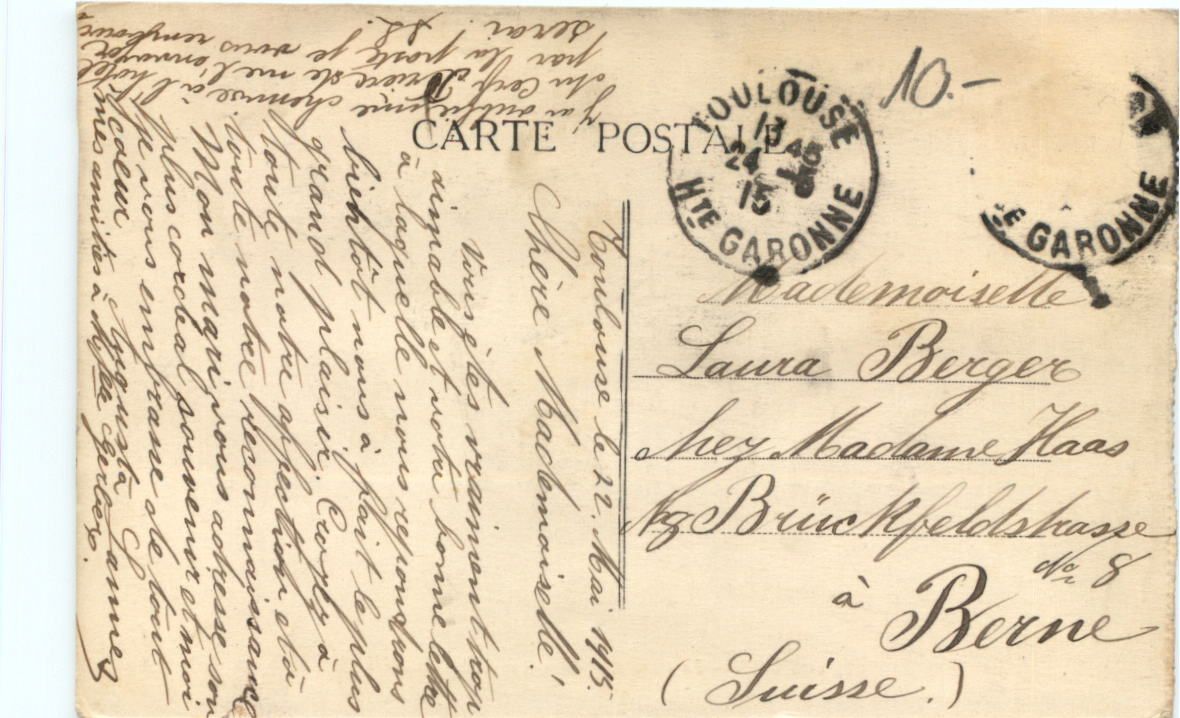 CARTE POSTALE
TOULOUSE
13 45
24 - 5
15
Hte GARONNE
Hte GARONNE
10.-
Mademoiselle
Laura Berger
chez Madame Haas
Brückfeldstrasse
No 8
à Berne
(Suisse.)
Toulouse le 22. Mai 1915.
Chère Mademoiselle!
Vous êtes vraiment trop
aimable et votre bonne lettre
à laquelle nous repondrons
bientôt nous à fait le plus
grand plaisir. Croyez à
toute notre affection et à
toute notre reconnaissance
Mon mari vous adresse son
plus cordial souvenir et moi
je vous embrasse de tout
cœur Augusta
mes amitiés à
J'ai oublié une chemise à l'hôtel
du Cerf. Prière de me l'envoyer
par la poste je vous rembour
serai.